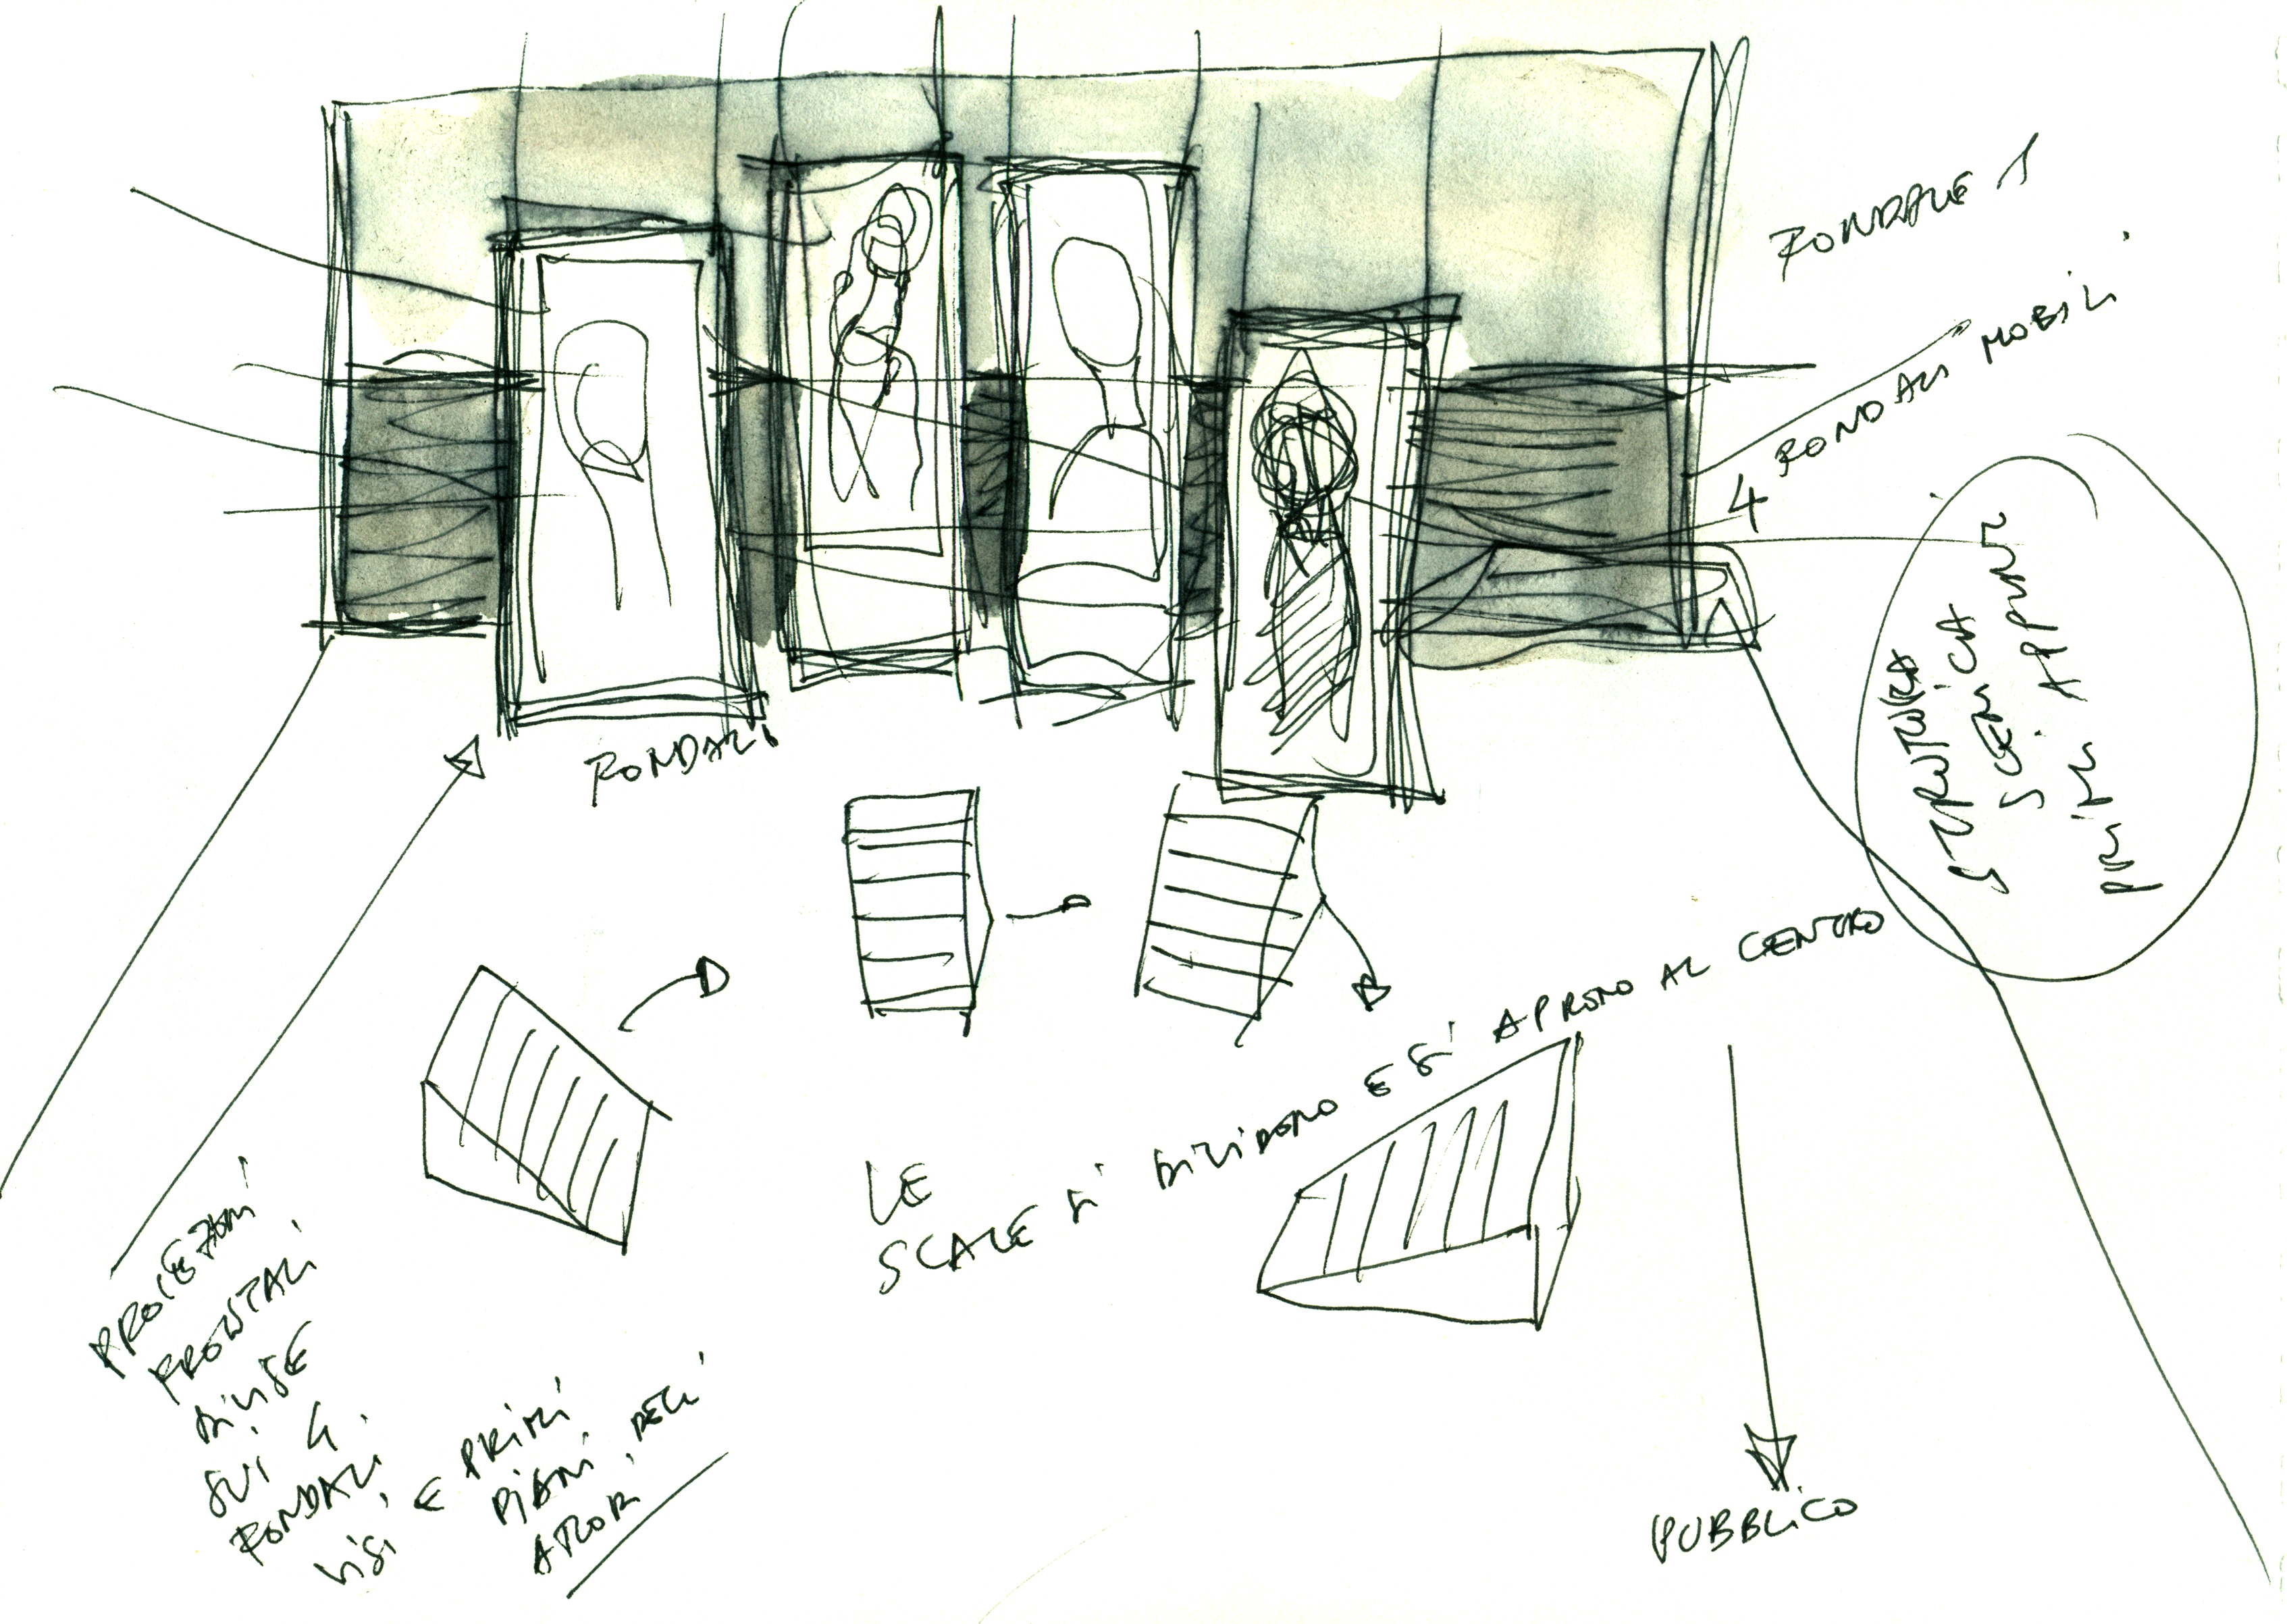 FONDALE 1
4 FONDALI MOBILI
STRUTTURA
SCENICA
FONDALI
LE
SCALE SI DIVIDONO E SI APRONO AL CENTRO
PROIEZIONI
FRONTALI
DIVISE
SUI 4
FONDALI
VISI E PRIMI
PIANI DELI
ATTORI
PUBBLICO